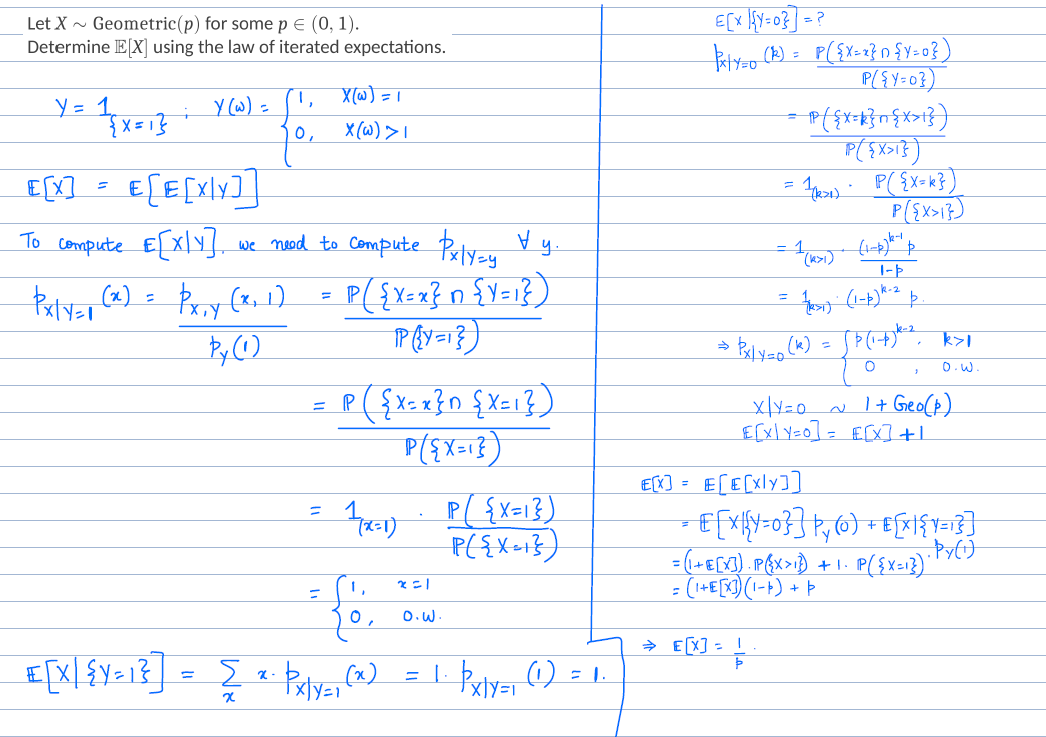 Let X ∼ Geometric(p) for some p ∈ (0, 1).
Determine 𝔼[X] using the law of iterated expectations.
Y = 1_{{X=1}} ; Y(ω) = { 1, X(ω) = 1
0, X(ω) > 1
𝔼[X] = 𝔼[𝔼[X|Y]]
To compute 𝔼[X|Y], we need to compute p_{X|Y=y} ∀ y.
p_{X|Y=1}(x) = p_{X,Y}(x, 1) / p_Y(1) = ℙ({X=x} ∩ {Y=1}) / ℙ({Y=1})
= ℙ({X=x} ∩ {X=1}) / ℙ({X=1})
= 1_{(x=1)} · ℙ({X=1}) / ℙ({X=1})
= { 1, x=1
0, o.w.
𝔼[X|{Y=1}] = Σ_x x · p_{X|Y=1}(x) = 1 · p_{X|Y=1}(1) = 1.
𝔼[X|{Y=0}] = ?
p_{X|Y=0}(k) = ℙ({X=x} ∩ {Y=0}) / ℙ({Y=0})
= ℙ({X=k} ∩ {X>1}) / ℙ({X>1})
= 1_{(k>1)} · ℙ({X=k}) / ℙ({X>1})
= 1_{(k>1)} · (1-p)^{k-1} p / 1-p
= 1_{(k>1)} · (1-p)^{k-2} p.
⇒ p_{X|Y=0}(k) = { p(1-p)^{k-2}, k>1
0 , o.w.
X|Y=0 ∼ 1 + Geo(p)
𝔼[X|Y=0] = 𝔼[X] + 1
𝔼[X] = 𝔼[𝔼[X|Y]]
= 𝔼[X|{Y=0}] p_Y(0) + 𝔼[X|{Y=1}] · p_Y(1)
= (1+𝔼[X]) · ℙ({X>1}) + 1 · ℙ({X=1})
= (1+𝔼[X])(1-p) + p
⇒ 𝔼[X] = 1/p.